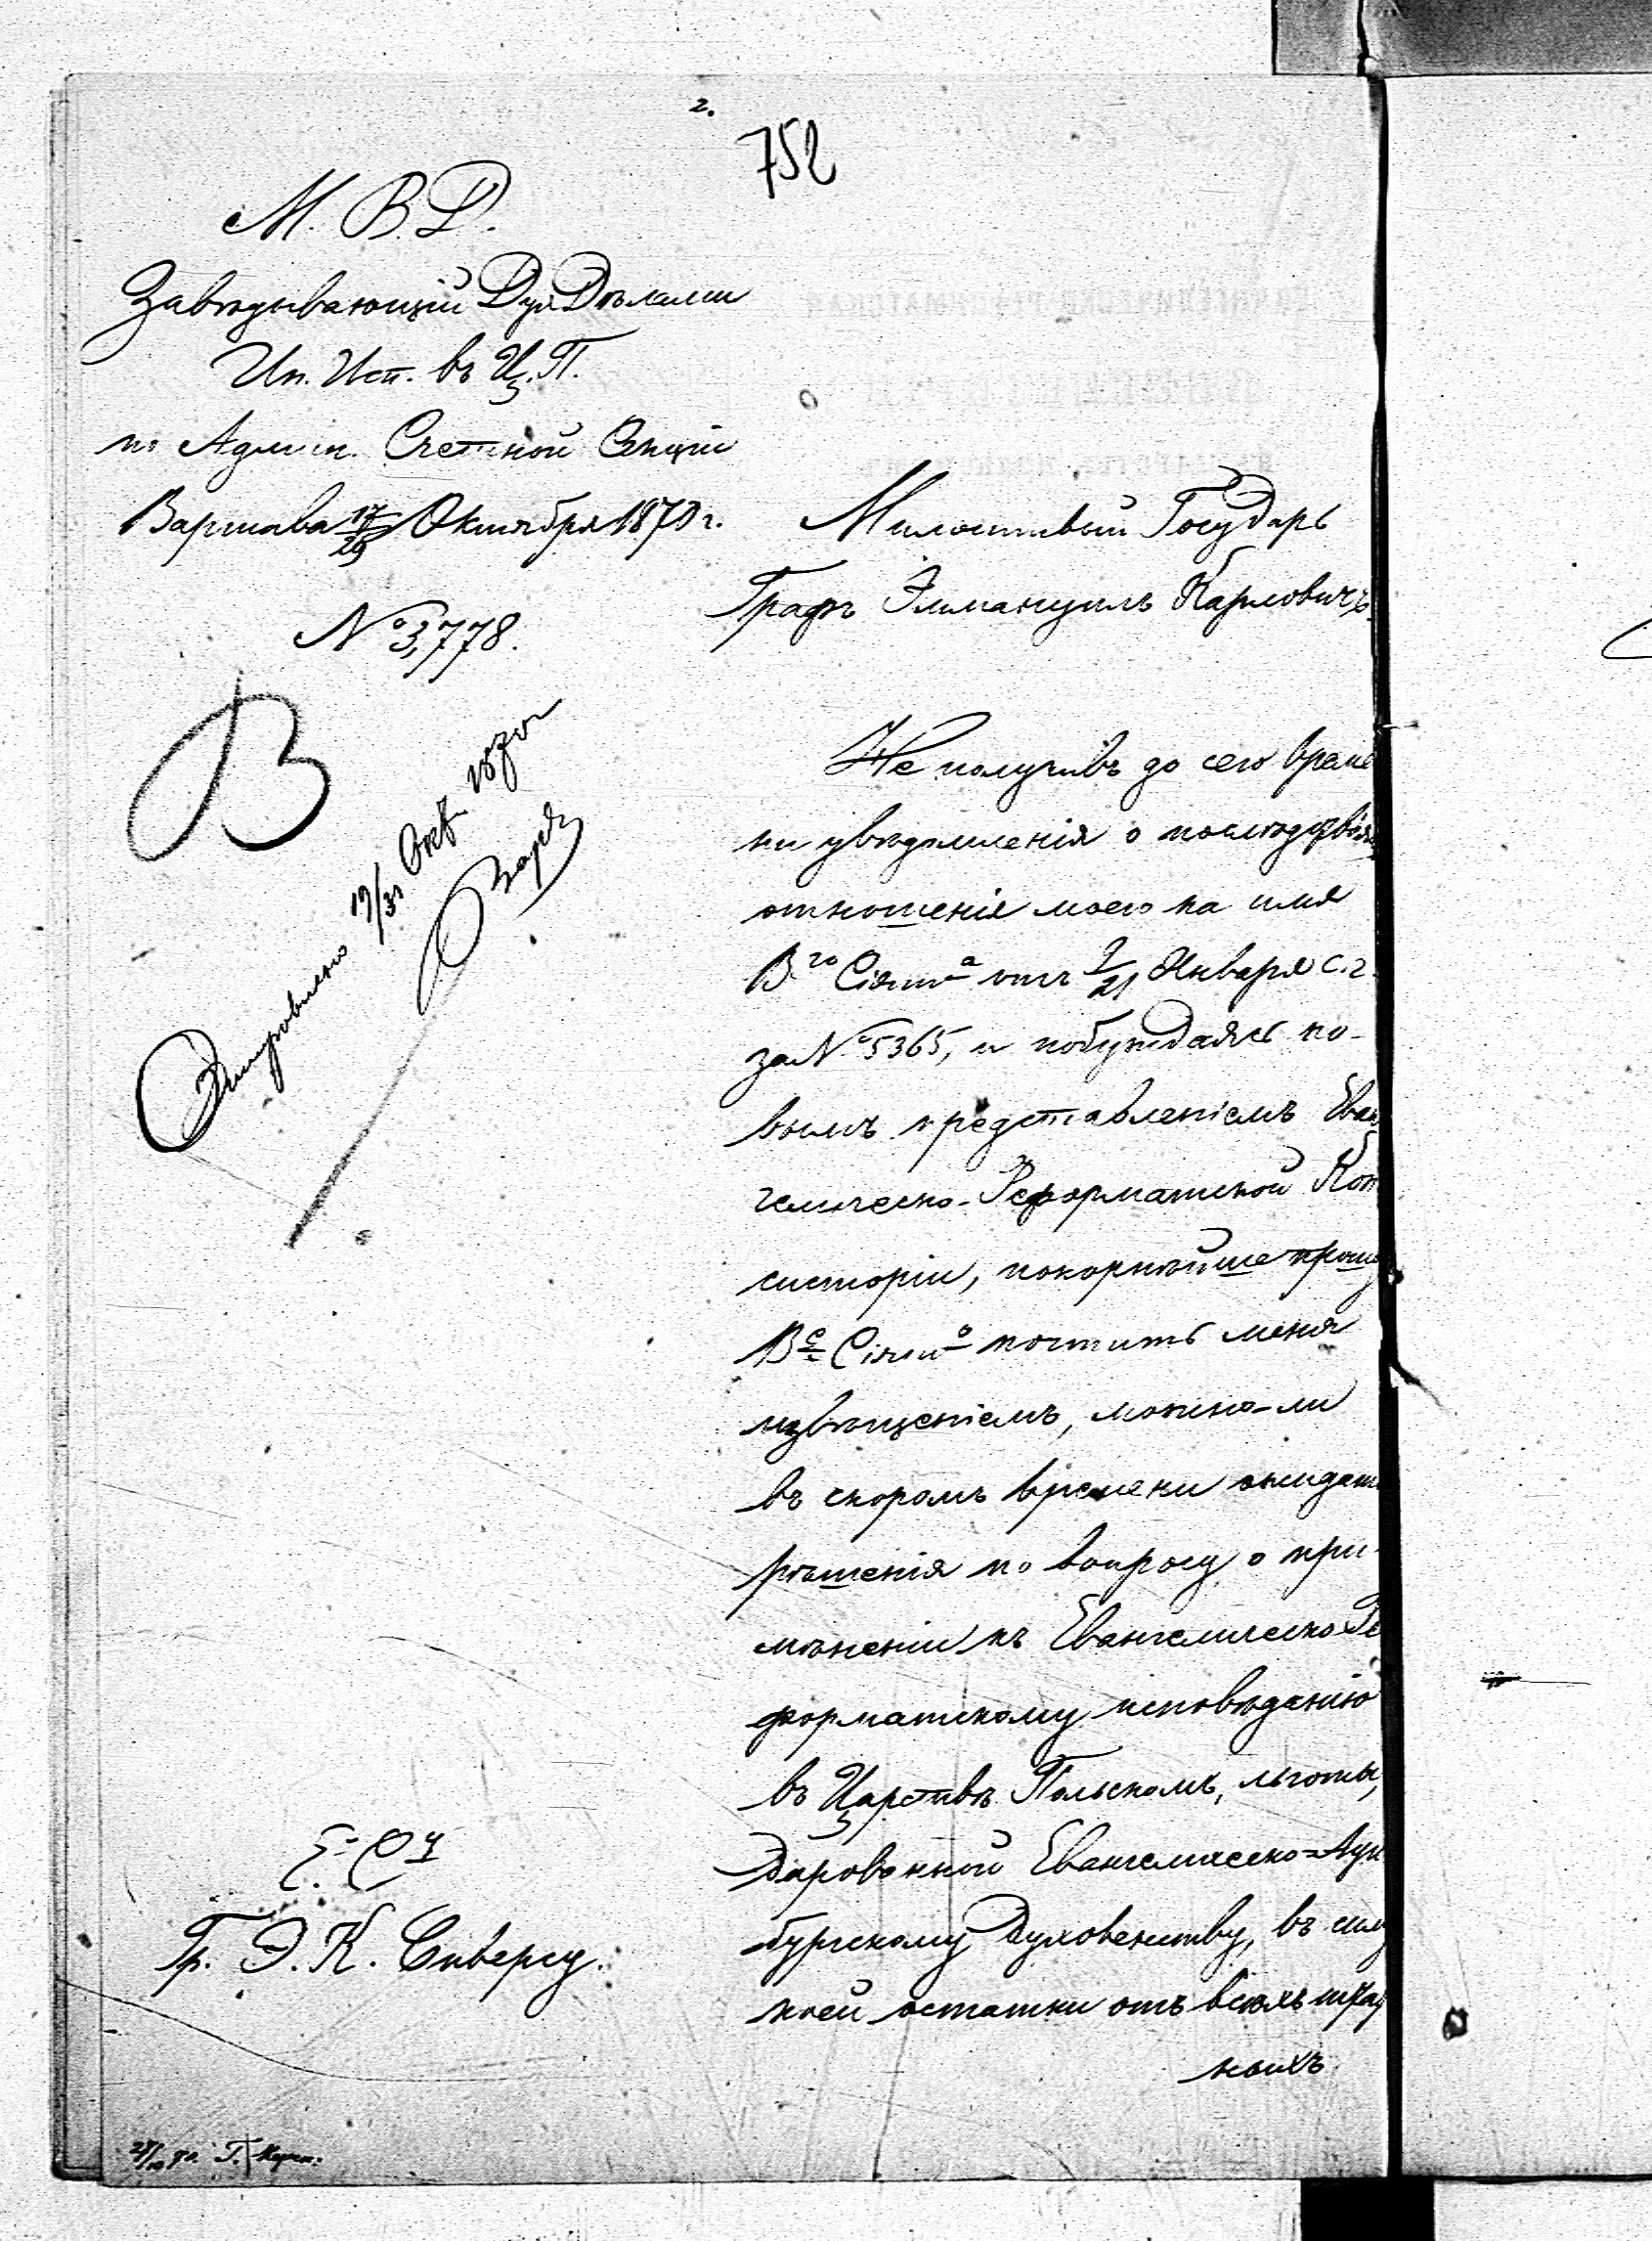 2.
752
М. В. Д.
Завѣдывающій Дух. Дѣлами
Ин. Исп. въ Ц. П.
по Админ. Счетной Секціи
Варшава 17/29 Октября 1870 г.
№ 3,778.
В
Отправлено 19/31 Окт. 1870 г.
Милостивый Государь
Графъ Эммануилъ Карловичъ.
Не получивъ до сего време
ни увѣдомленія о послѣдствіях
отношенія моего на имя
В.го Сіят.а отъ 9/21 Января с. г.
за № 5365, и побуждаясь но-
вымъ представленіемъ Еван
гелическо-Реформатской Кон
систоріи, покорнѣйше прошу
В.е Сіят.о почтить меня
извѣщеніемъ, можно-ли
въ скоромъ времени ожидать
рѣшенія по вопросу о при-
мѣненіи къ Евангелическо-Ре
форматскому исповѣданію
въ Царствѣ Польскомъ, льготы,
дарованной Евангелическо-Аугс
бургскому Духовенству, въ силу
коей остатки отъ всѣхъ штат
ныхъ
Е. С.
Гр. Э. К. Сиверсу.